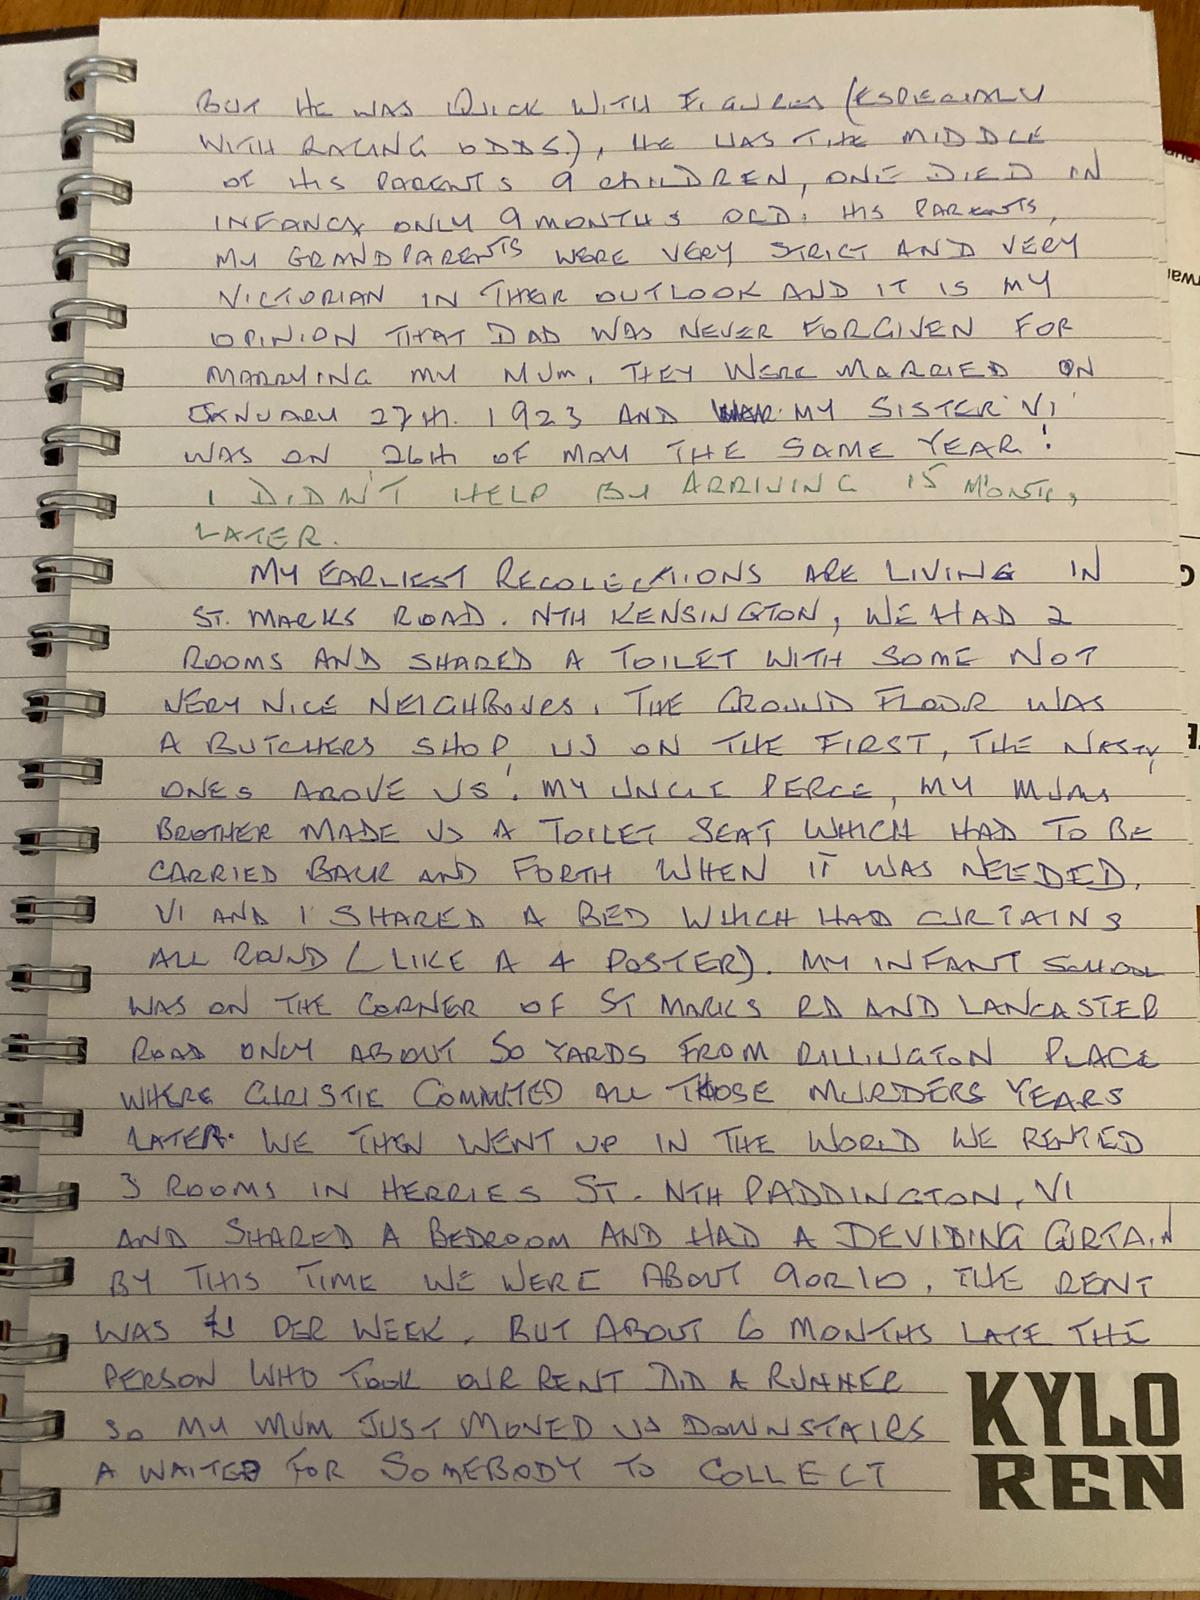 BUT HE WAS QUICK WITH FIGURES (ESPECIALLY
WITH RACING ODDS.), HE WAS THE MIDDLE
OF HIS PARENTS 9 CHILDREN, ONE DIED IN
INFANCY ONLY 9 MONTHS OLD. HIS PARENTS,
MY GRANDPARENTS WERE VERY STRICT AND VERY
VICTORIAN IN THEIR OUTLOOK AND IT IS MY
OPINION THAT DAD WAS NEVER FORGIVEN FOR
MARRYING MY MUM. THEY WERE MARRIED ON
JANUARY 27TH. 1923 AND MY SISTER VI
WAS ON 26TH OF MAY THE SAME YEAR!
I DIDN'T HELP BY ARRIVING 15 MONTHS
LATER.
MY EARLIEST RECOLECTIONS ARE LIVING IN
ST. MARKS ROAD. NTH KENSINGTON, WE HAD 2
ROOMS AND SHARED A TOILET WITH SOME NOT
VERY NICE NEIGHBOURS. THE GROUND FLOOR WAS
A BUTCHERS SHOP, US ON THE FIRST, THE NASTY
ONES ABOVE US! MY UNCLE PERCE, MY MUMS
BROTHER MADE US A TOILET SEAT WHICH HAD TO BE
CARRIED BACK AND FORTH WHEN IT WAS NEEDED.
VI AND I SHARED A BED WHICH HAD CURTAINS
ALL ROUND (LIKE A 4 POSTER). MY INFANT SCHOOL
WAS ON THE CORNER OF ST MARKS RD AND LANCASTER
ROAD ONLY ABOUT 50 YARDS FROM RILLINGTON PLACE
WHERE CHRISTIE COMMITED ALL THOSE MURDERS YEARS
LATER. WE THEN WENT UP IN THE WORLD WE RENTED
3 ROOMS IN HERRIES ST. NTH PADDINGTON, VI
AND SHARED A BEDROOM AND HAD A DEVIDING CURTAIN
BY THIS TIME WE WERE ABOUT 9 OR 10. THE RENT
WAS £1 PER WEEK, BUT ABOUT 6 MONTHS LATE THE
PERSON WHO TOOK OUR RENT DID A RUNNER
SO MY MUM JUST MOVED US DOWNSTAIRS
A WAITED FOR SOMEBODY TO COLLECT
KYLO
REN